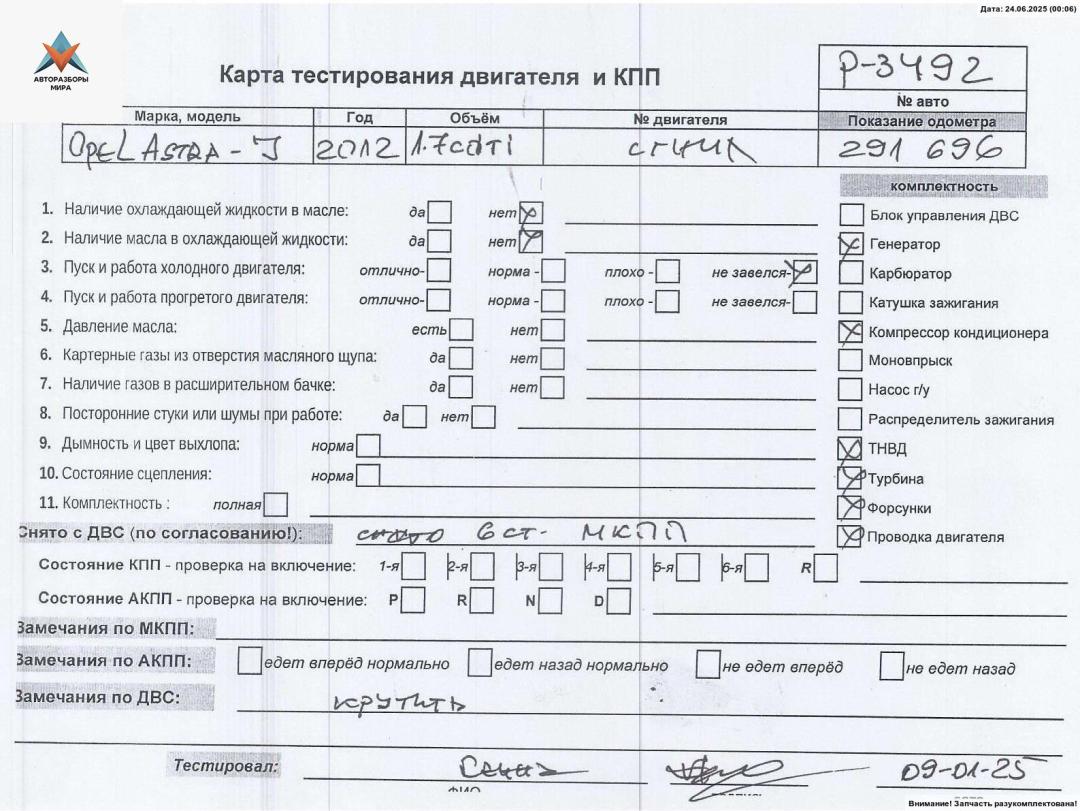 Дата: 24.06.2025 (00:06)
АВТОРАЗБОРЫ
МИРА
Карта тестирования двигателя и КПП
P-3492
№ авто
Марка, модель Год Объём № двигателя Показание одометра
OPEL ASTRA-J 2012 1.7cdti сгнил 291 696
комплектность
1. Наличие охлаждающей жидкости в масле: да нет
Блок управления ДВС
2. Наличие масла в охлаждающей жидкости: да нет
Генератор
3. Пуск и работа холодного двигателя: отлично- норма - плохо - не завелся-
Карбюратор
4. Пуск и работа прогретого двигателя: отлично- норма - плохо - не завелся-
Катушка зажигания
5. Давление масла: есть нет
Компрессор кондиционера
6. Картерные газы из отверстия масляного щупа: да нет
Моновпрыск
7. Наличие газов в расширительном бачке: да нет
Насос г/у
8. Посторонние стуки или шумы при работе: да нет
Распределитель зажигания
9. Дымность и цвет выхлопа: норма
ТНВД
10. Состояние сцепления: норма
Турбина
11. Комплектность : полная
Форсунки
Снято с ДВС (по согласованию!): 6 ст- МКПП
Проводка двигателя
Состояние КПП - проверка на включение: 1-я 2-я 3-я 4-я 5-я 6-я R
Состояние АКПП - проверка на включение: P R N D
Замечания по МКПП:
Замечания по АКПП: едет вперёд нормально едет назад нормально не едет вперёд не едет назад
Замечания по ДВС: крутить
Тестировал: 09-01-25
ФИО
Внимание! Запчасть разукомплектована!